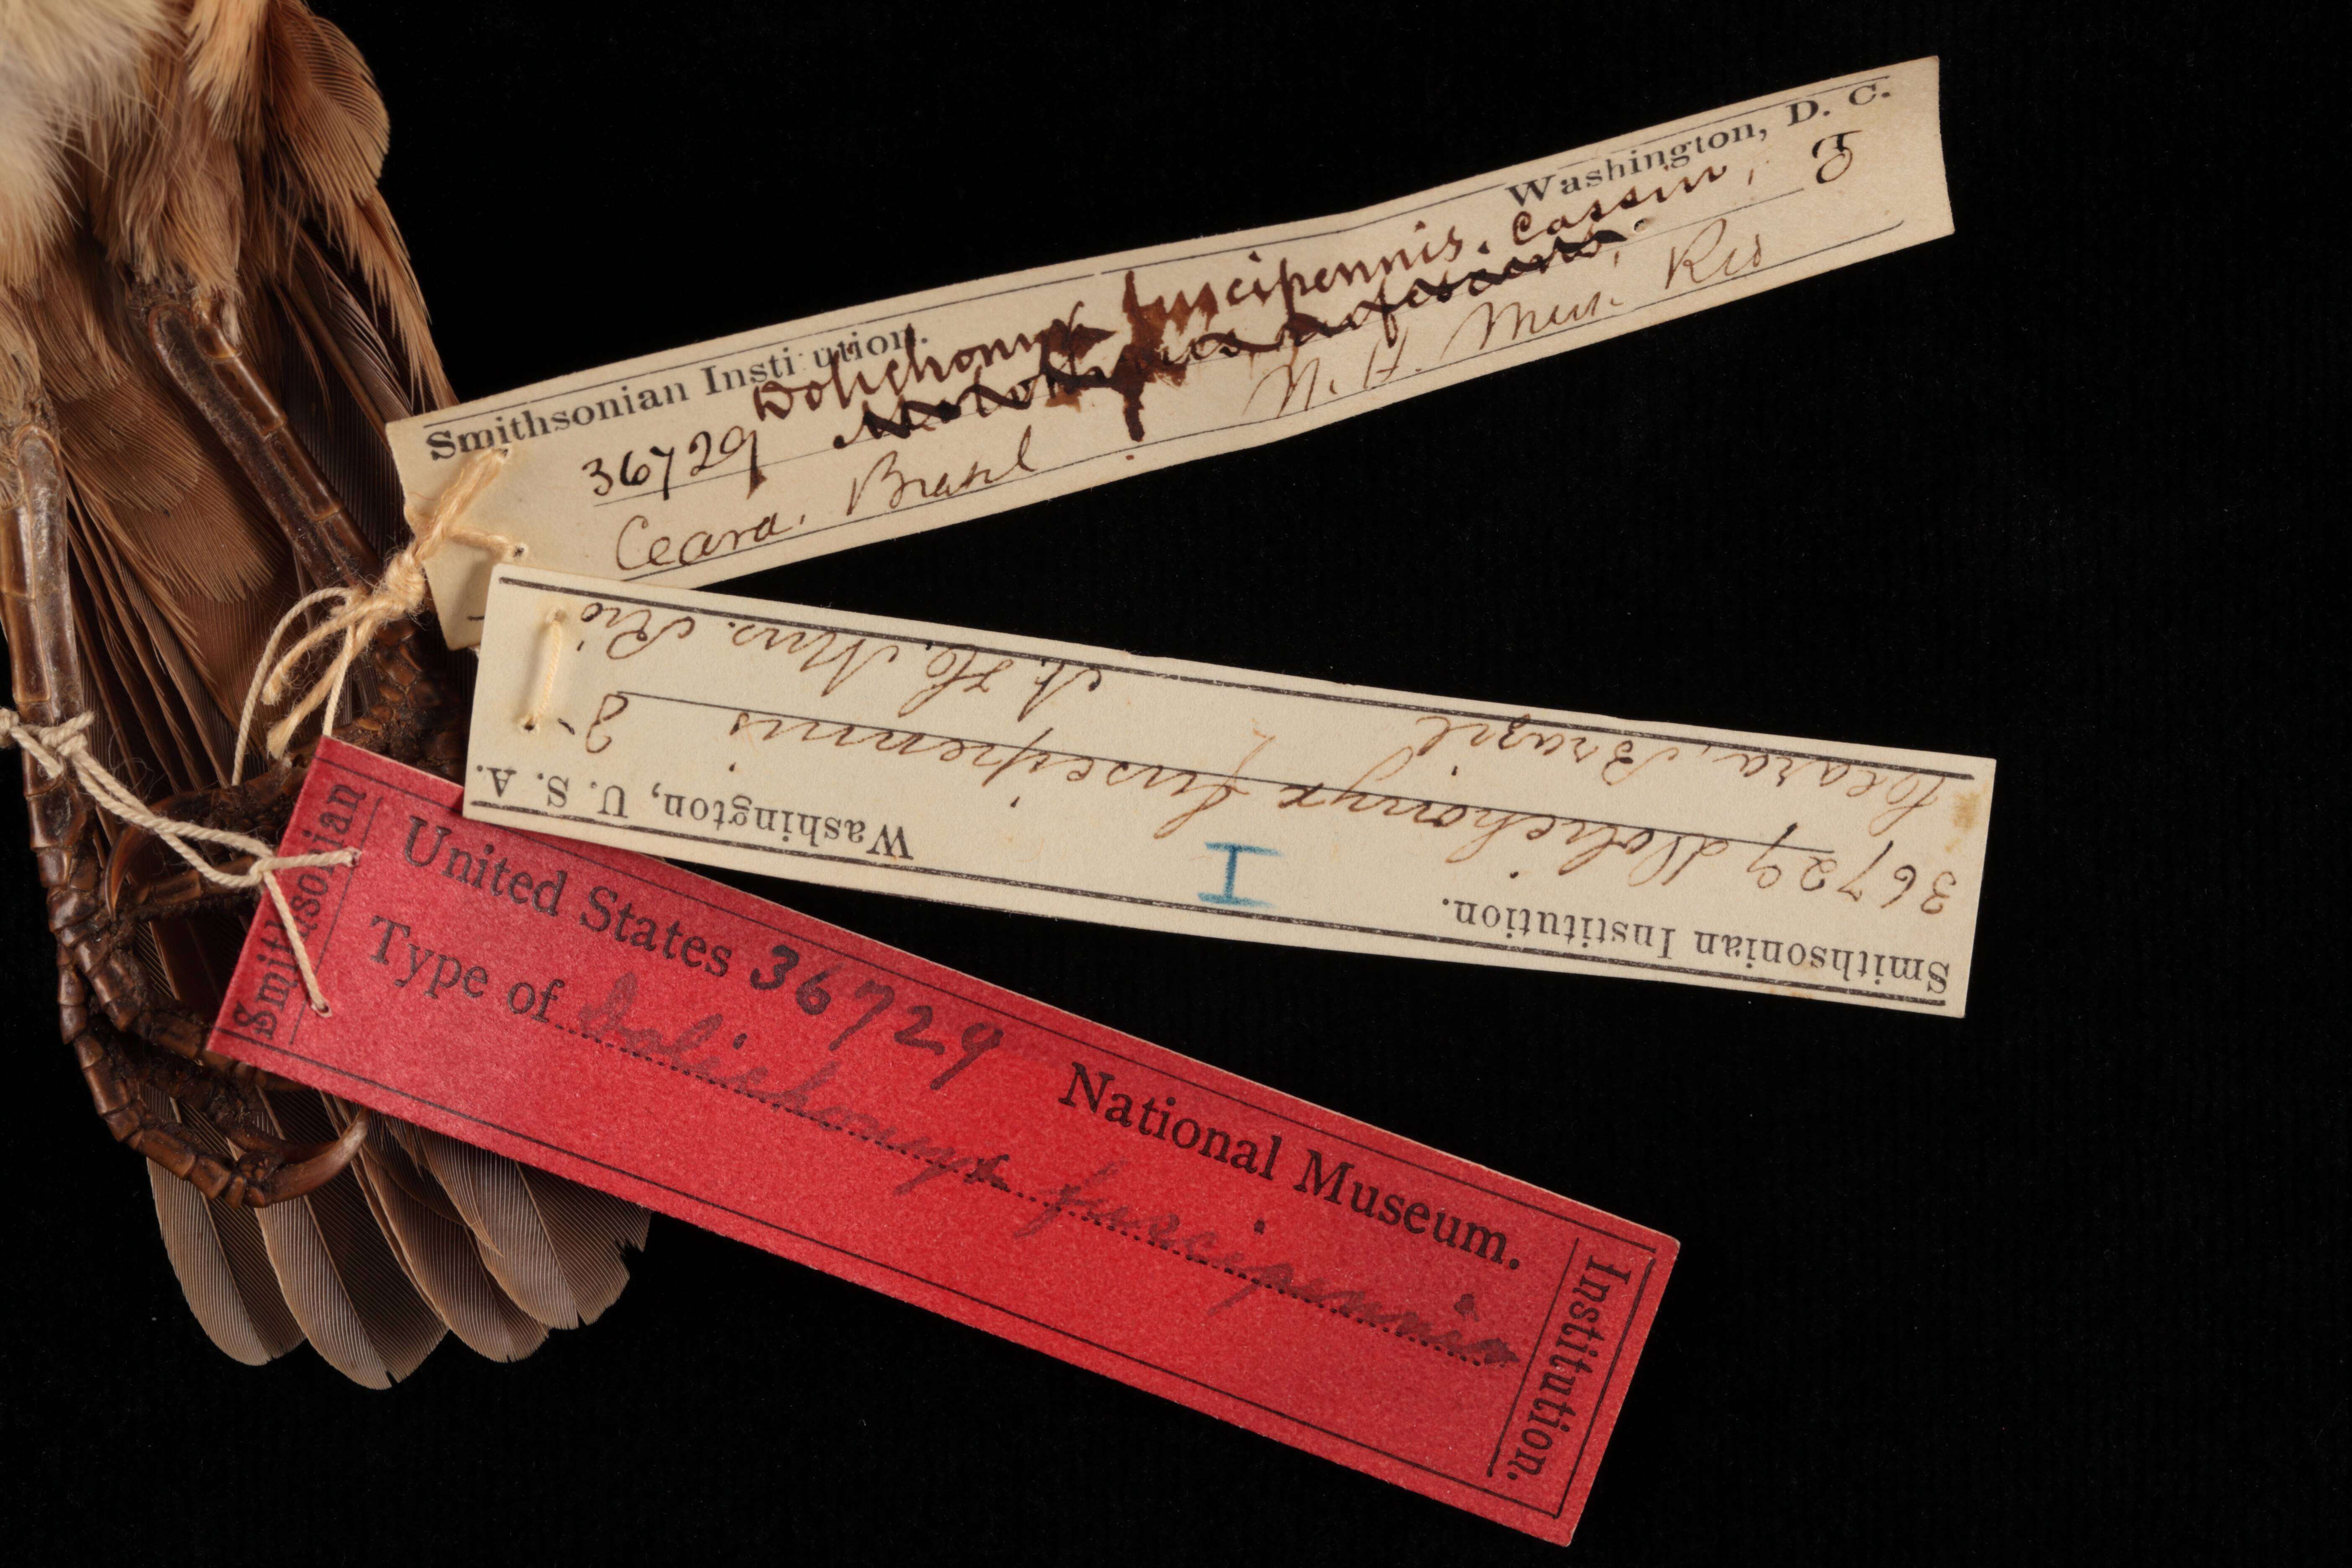 Smithsonian Institution. Washington, D. C.
36729 Dolichonyx fuscipennis. Cassin,
Ceara. Brazil N. H. Mus. Rio
Smithsonian Institution. Washington, U. S. A.
I
36729 Dolichonyx fuscipennis
Ceara, Brazil N. H. Mus. Rio
Smithsonian
United States 36729 National Museum.
Type of Dolichonyx fuscipennis
Institution.